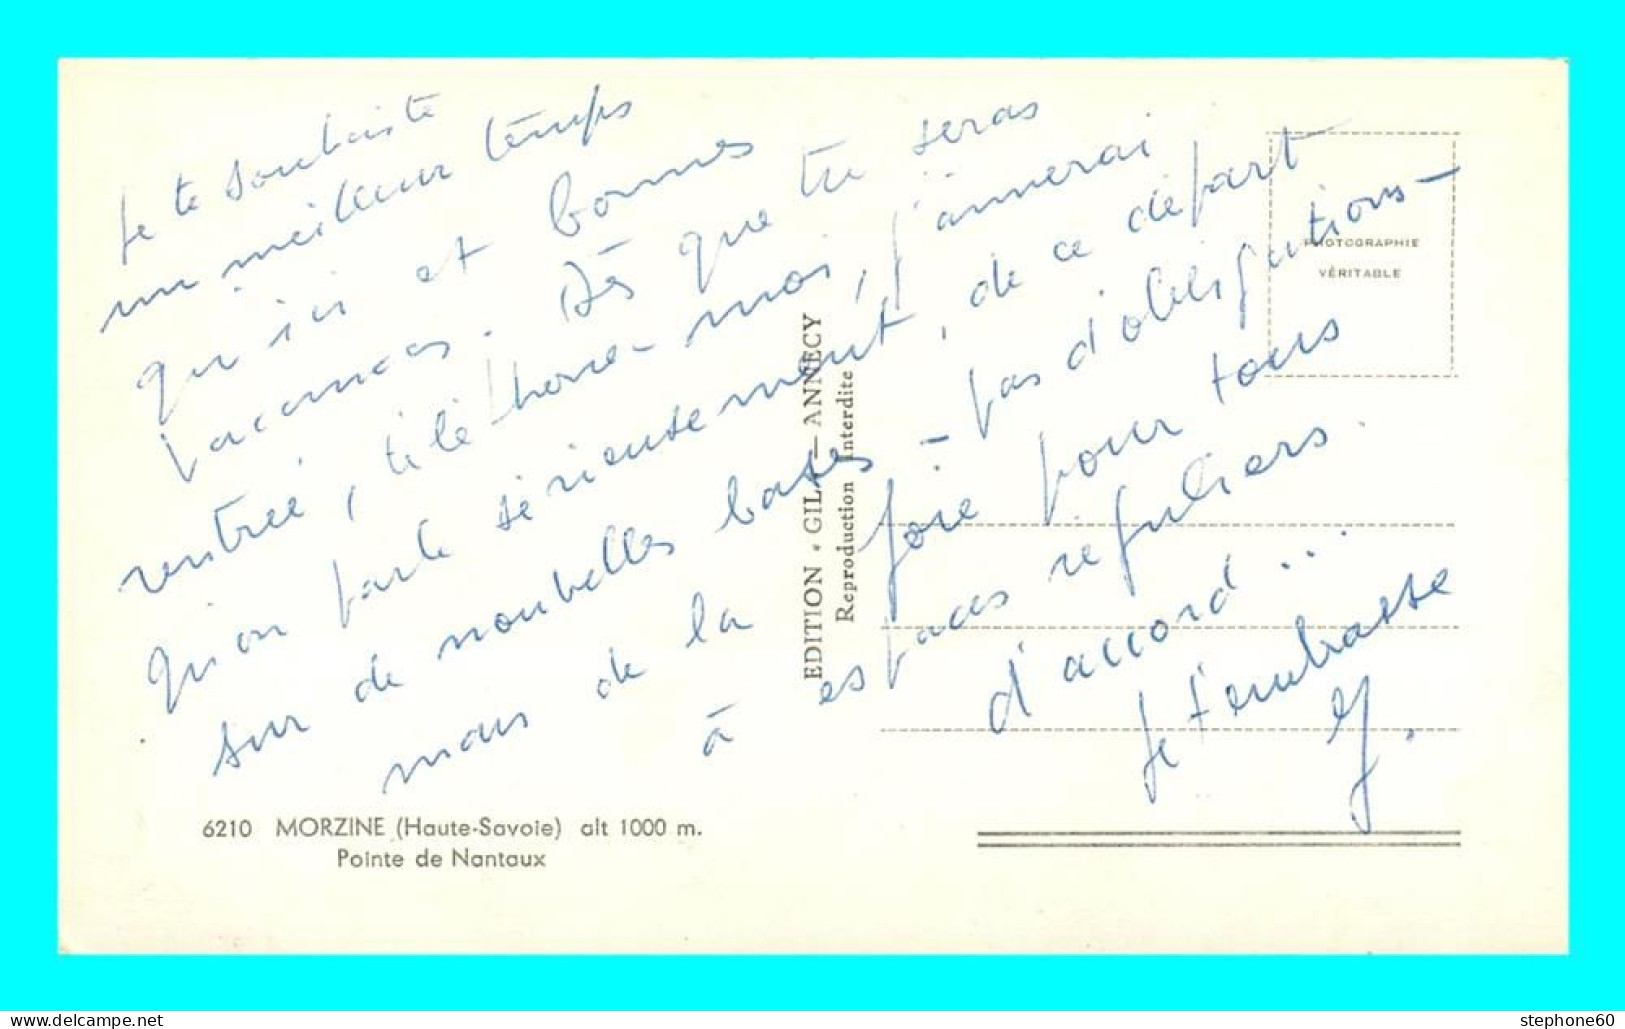 Je te souhaite
un meilleur temps
qu'ici et bonnes
vacances. Dès que tu seras
rentrée, téléphone-moi, j'aimerai
qu'on parle sérieusement, de ce départ
sur de nouvelles bases - pas d'obligations -
mais de la joie pour tous
à espaces réguliers.
d'accord...
Je t'embrasse
PHOTOGRAPHIE
VÉRITABLE
EDITION • GILI — ANNECY
Reproduction Interdite
6210 MORZINE (Haute-Savoie) alt 1000 m.
Pointe de Nantaux
https://www.delcampe.net
stephone60